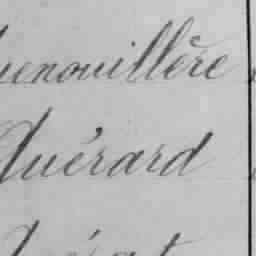 uenouillère
Quérard